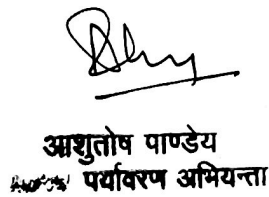 आशुतोष पाण्डेय
पर्यावरण अभियन्ता